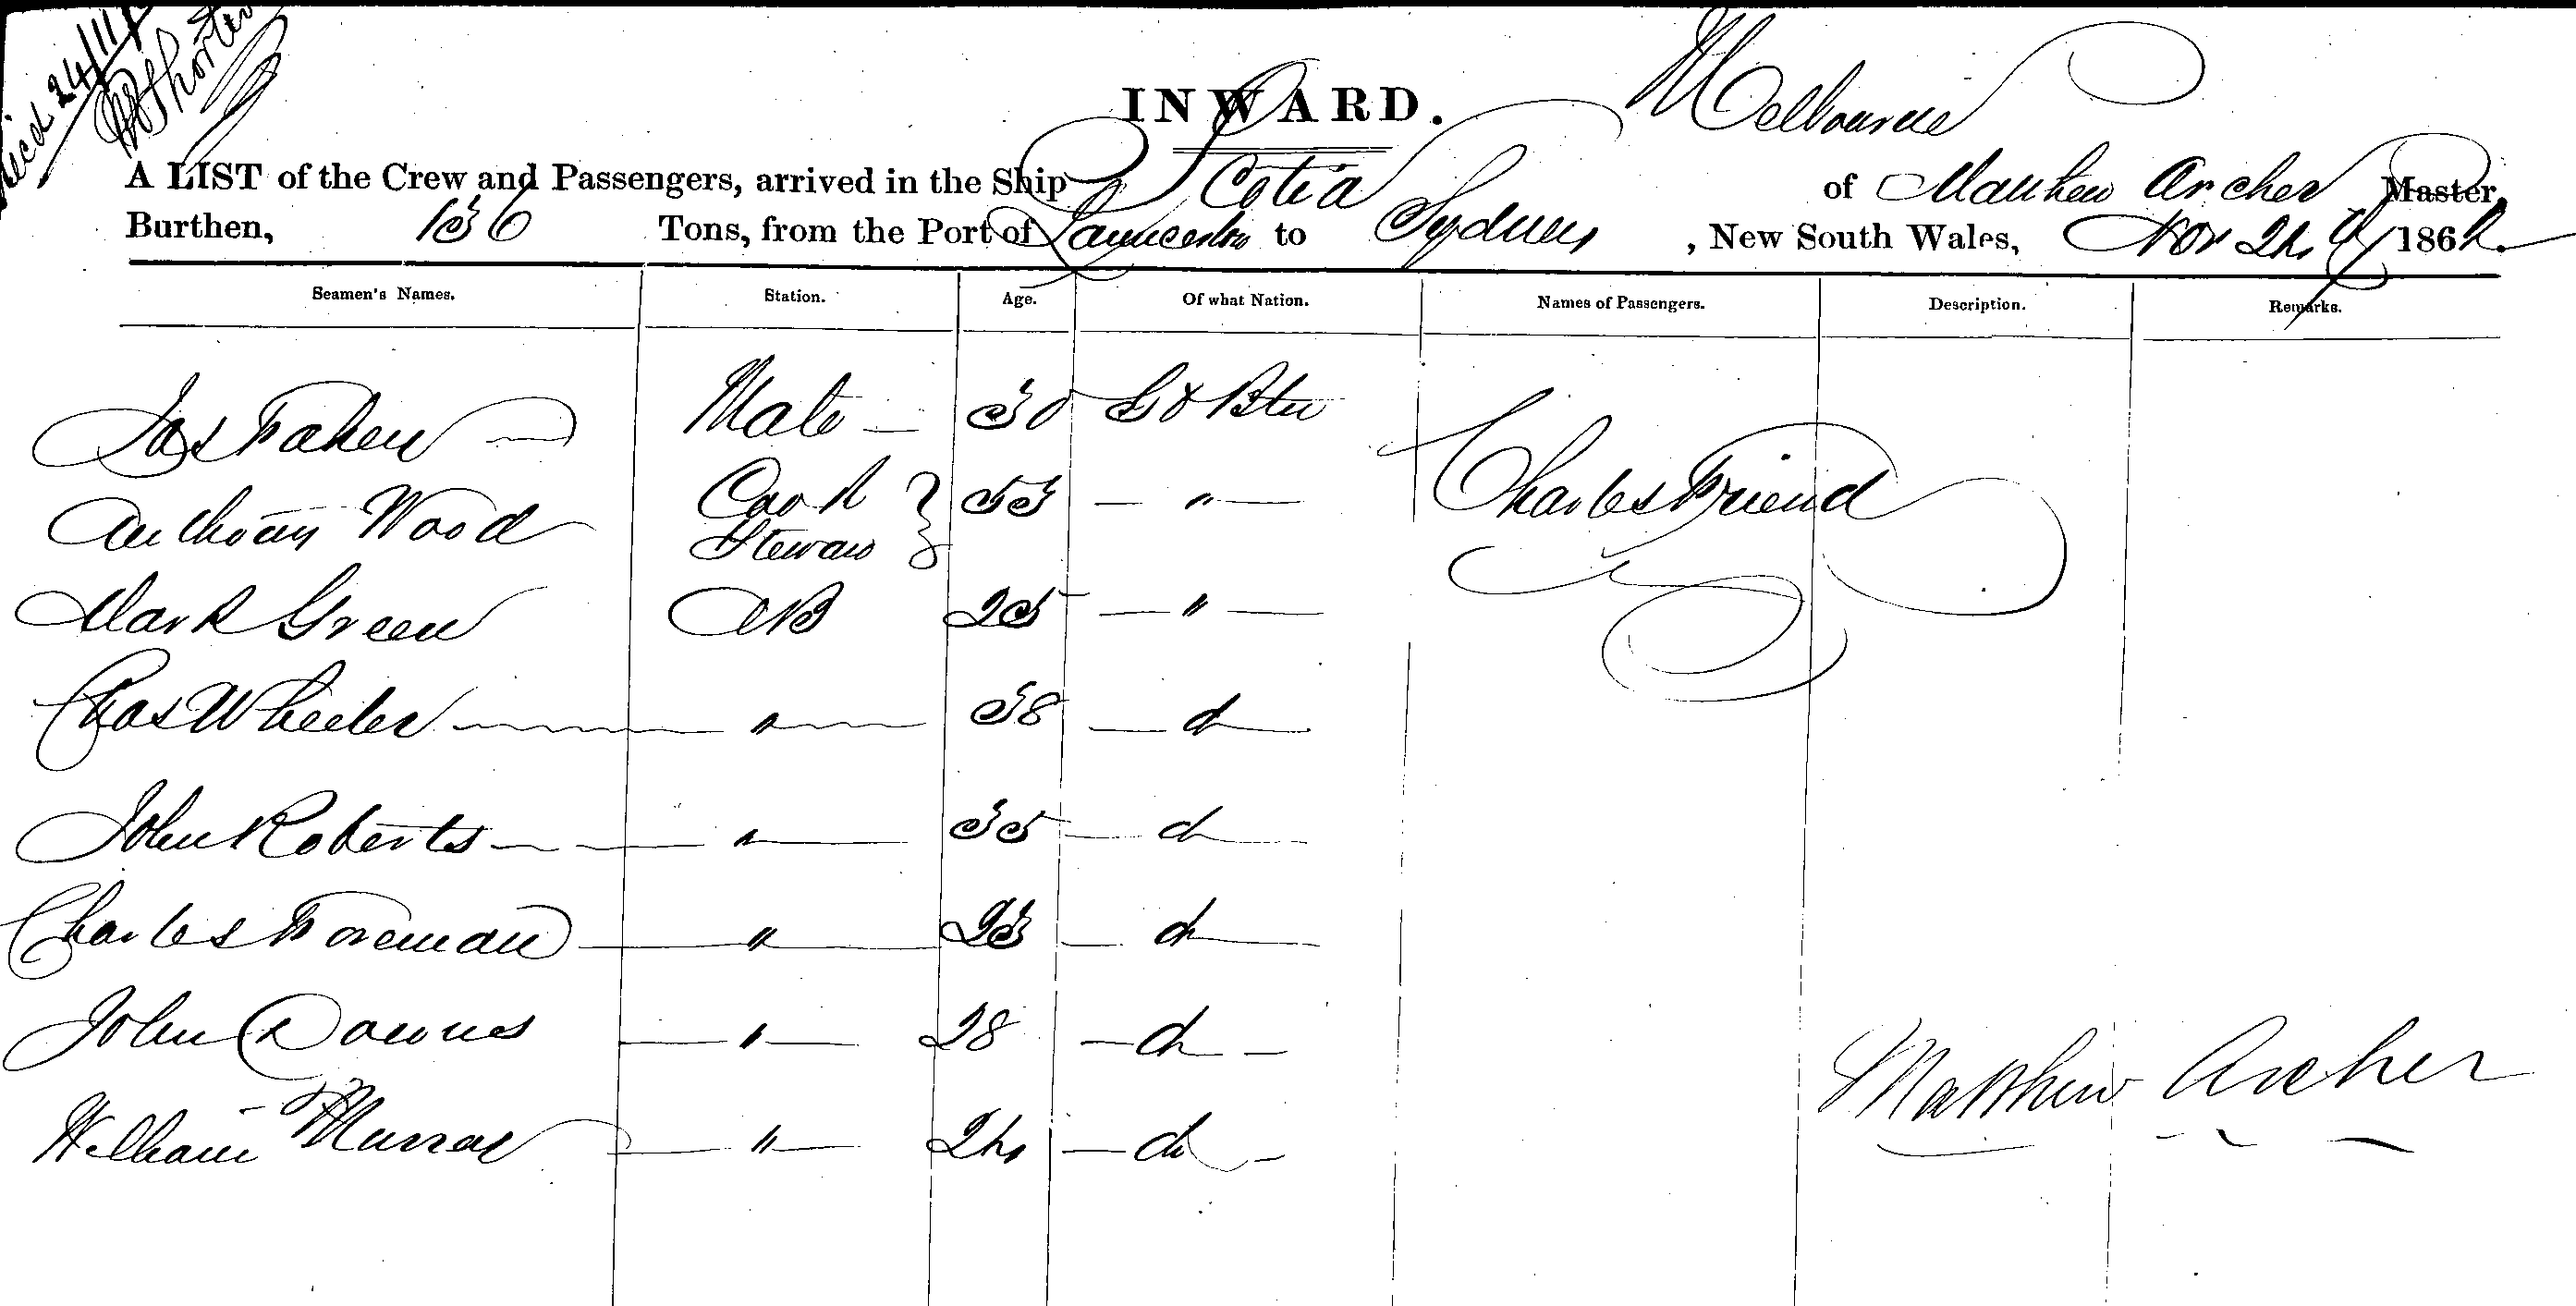 Recd 24/11/
INWARD.
Melbourne
A LIST of the Crew and Passengers, arrived in the Ship Scotia of Matthew Archer Master,
Burthen, 136 Tons, from the Port of Launceston to Sydney, New South Wales, Nov 24 1864
Seamen's Names. Station. Age. Of what Nation. Names of Passengers. Description. Remarks.
Jas Fahey Mate 30 Gt Btn
Anthony Wood Cook Steward 53 " Charles Friend
Mark Green AB 25 "
Chas Wheeler " 38 do
John Roberts " 35 do
Charles Foreman " 23 do
John Downes " 28 do
William Murray " 24 do
Matthew Archer